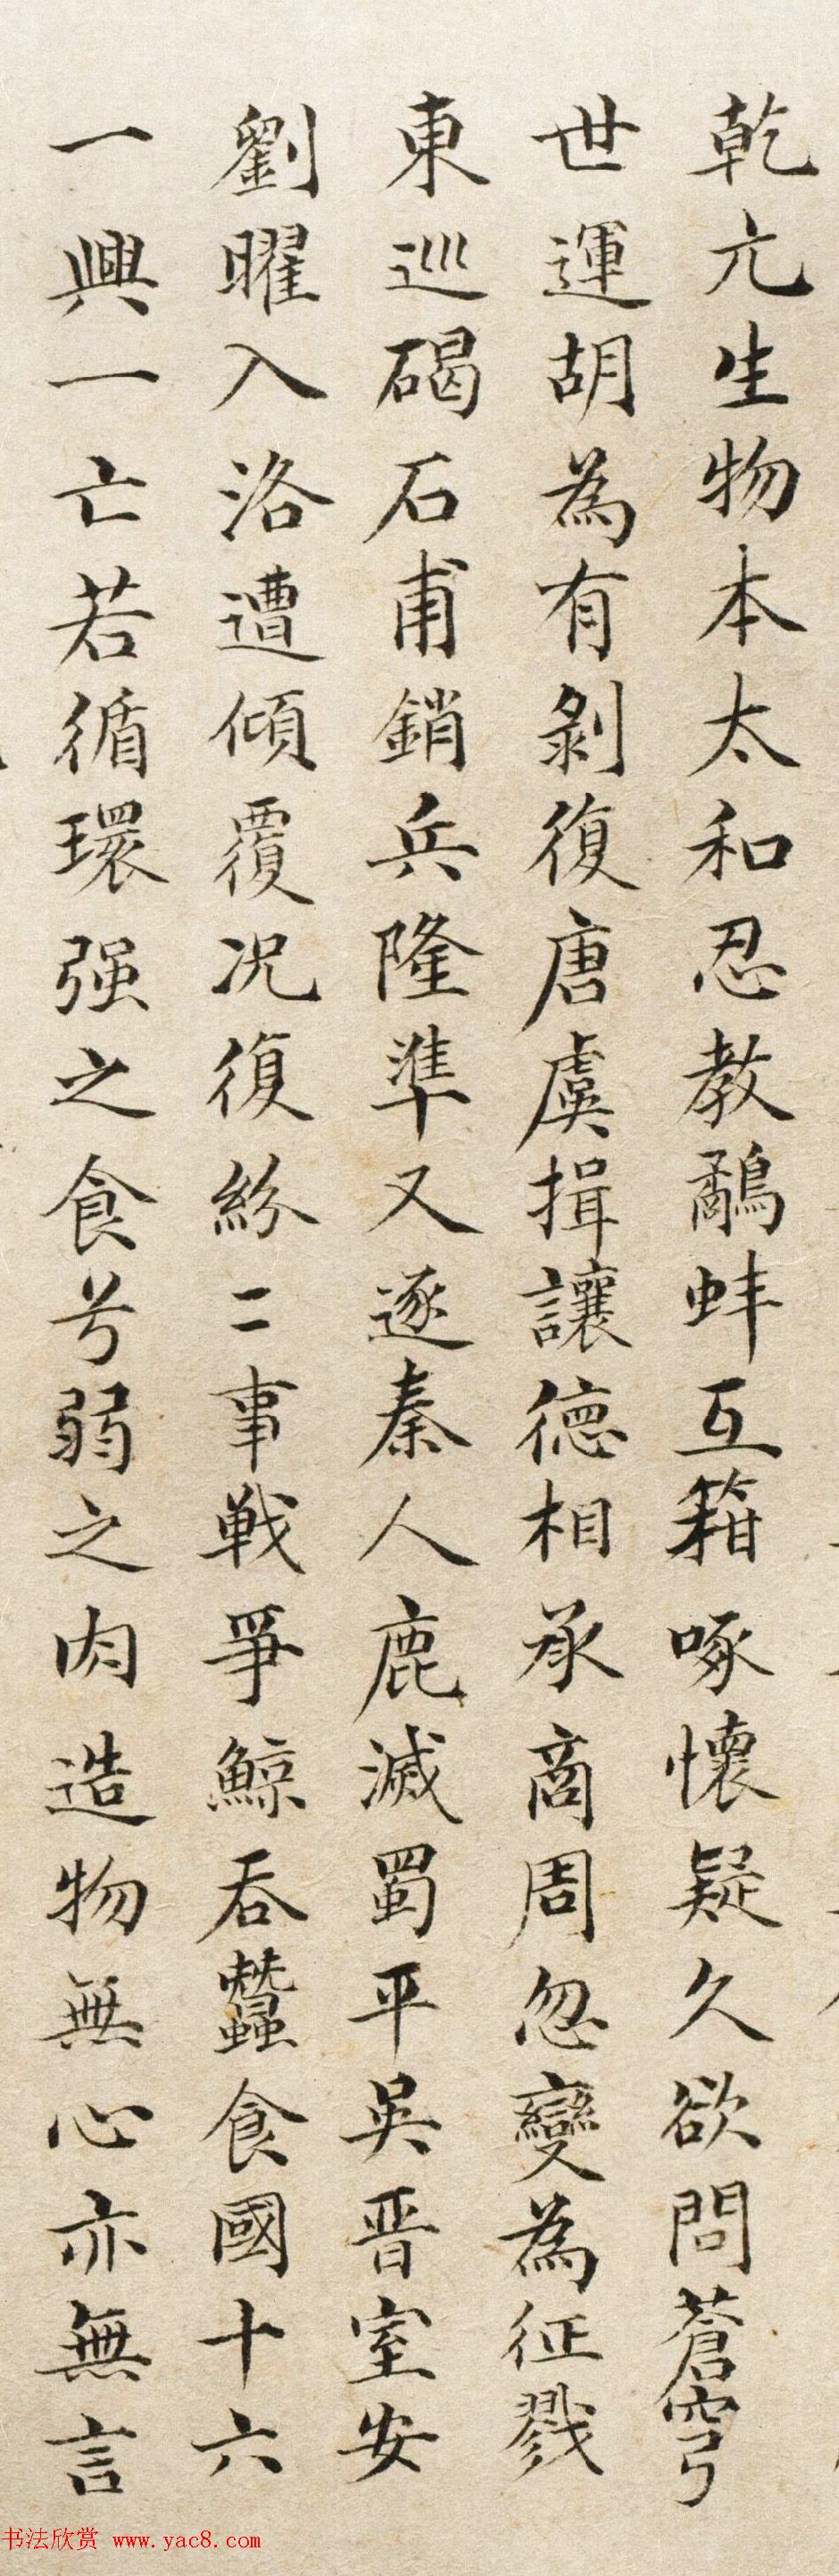 乾亢生物本太和忍教鷸蚌互箝啄懷疑久欲問蒼穹
世運胡為有剝復唐虞揖讓德相承商周忽變為征戮
東巡碣石甫銷兵隆準又逐秦人鹿滅蜀平吳晋室安
劉曜入洛遭傾覆况復紛二事戰爭鯨吞蠶食國十六
一興一亡若循環强之食兮弱之肉造物無心亦無言
书法欣赏 www.yac8.com